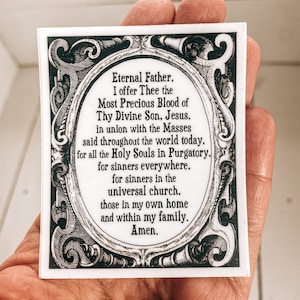 Eternal Father,
I offer Thee the
Most Precious Blood of
Thy Divine Son, Jesus,
in union with the Masses
said throughout the world today,
for all the Holy Souls in Purgatory,
for sinners everywhere,
for sinners in the
universal church,
those in my own home
and within my family.
Amen.